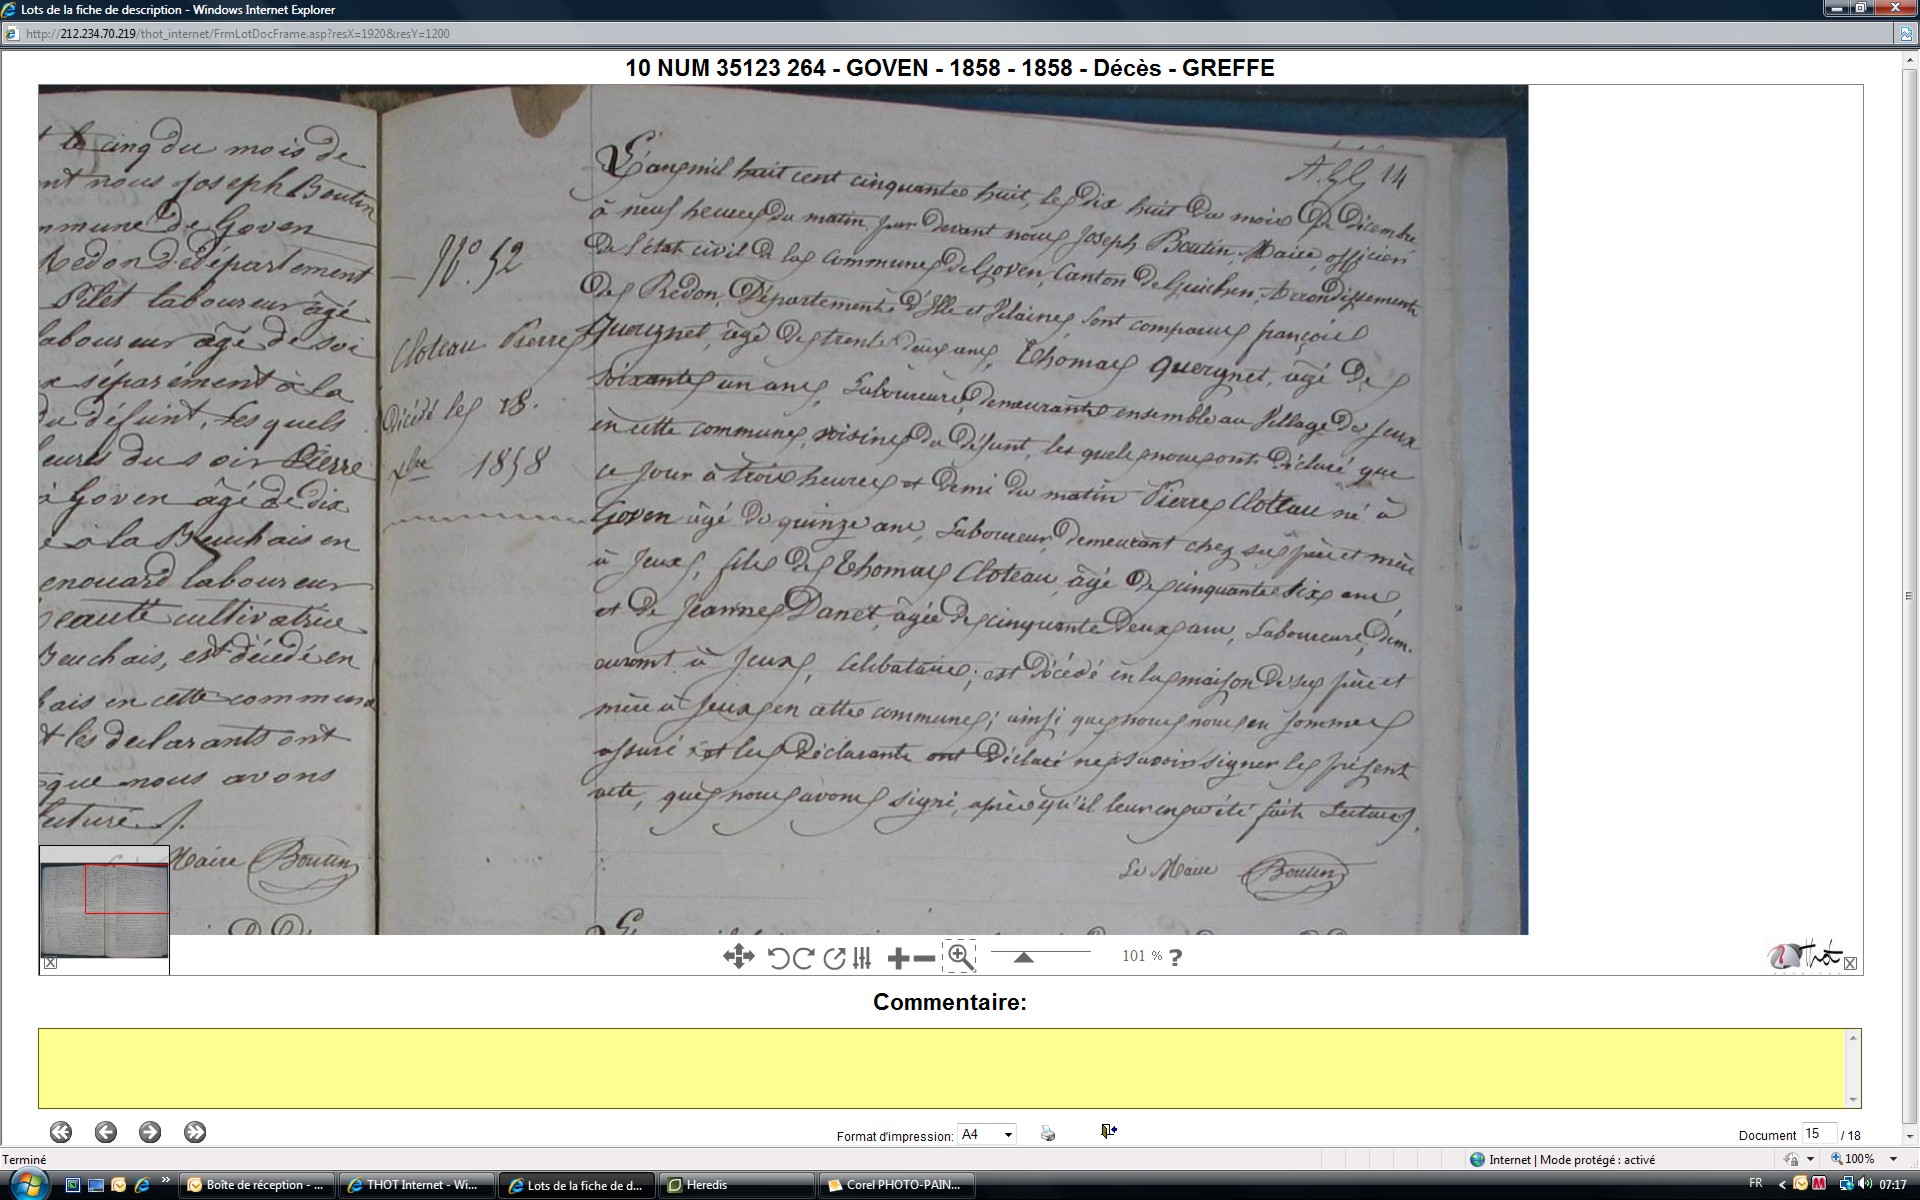 Lots de la fiche de description - Windows Internet Explorer
http://212.234.70.219/thot_internet/FrmLotDocFrame.asp?resX=1920&resY=1200
10 NUM 35123 264 - GOVEN - 1858 - 1858 - Décès - GREFFE
t le cinq du mois de
nt nous Joseph Boutin
mmune de Goven
Redon département
Pilet laboureur âgé
laboureur âgé de soi
x séparément à la
du défunt, les quels
eures du soir Pierre
à Goven âgé de dix
e à la Beuchais en
enouard laboureur
eauté cultivatrice
Beuchais, est décédé en
hais en cette commune
t les declarants ont
que nous avons
lecture
Maire Boutin
N° 52
Cloteau Pierre
Décédé le 18.
xbre 1858
14
L'an mil huit cent cinquante huit, le dix huit du mois de Décembre
à neuf heures du matin par devant nous Joseph Boutin, Maire, officier
de l'état civil de la commune de Goven, Canton de Guichen, Arrondissement
de Redon, Département d'Ille et Vilaine, sont comparus françois
Quergnet, âgé de trente deux ans, Thomas Quergnet, âgé de
soixante un ans, Laboureurs, demeurants ensemble au Village de Jeux
en cette commune, voisins du défunt, les quels nous ont déclaré que
ce jour à trois heures et demi du matin Pierre Cloteau né à
Goven âgé de quinze ans, Laboureur, demeurant chez ses père et mère
à Jeux, fils de Thomas Cloteau, âgé de cinquante six ans,
et de Jeanne Danet, âgée de cinquante deux ans, Laboureurs, dem-
eurant à Jeux, célibataire; est décédé en la maison de ses père et
mère à Jeux en cette commune; ainsi que nous nous en sommes
assuré et les Déclarants ont Déclaré ne savoir signer le présent
acte, que nous avons signé, après qu'il leur en a été fait Lecture.
Le Maire Boutin
101 % ?
Thot
Commentaire:
Format d'impression: A4
Document 15 / 18
Terminé
Internet | Mode protégé : activé
100%
Boîte de réception - ...
THOT Internet - Wi...
Lots de la fiche de d...
Heredis
Corel PHOTO-PAIN...
FR
07:17